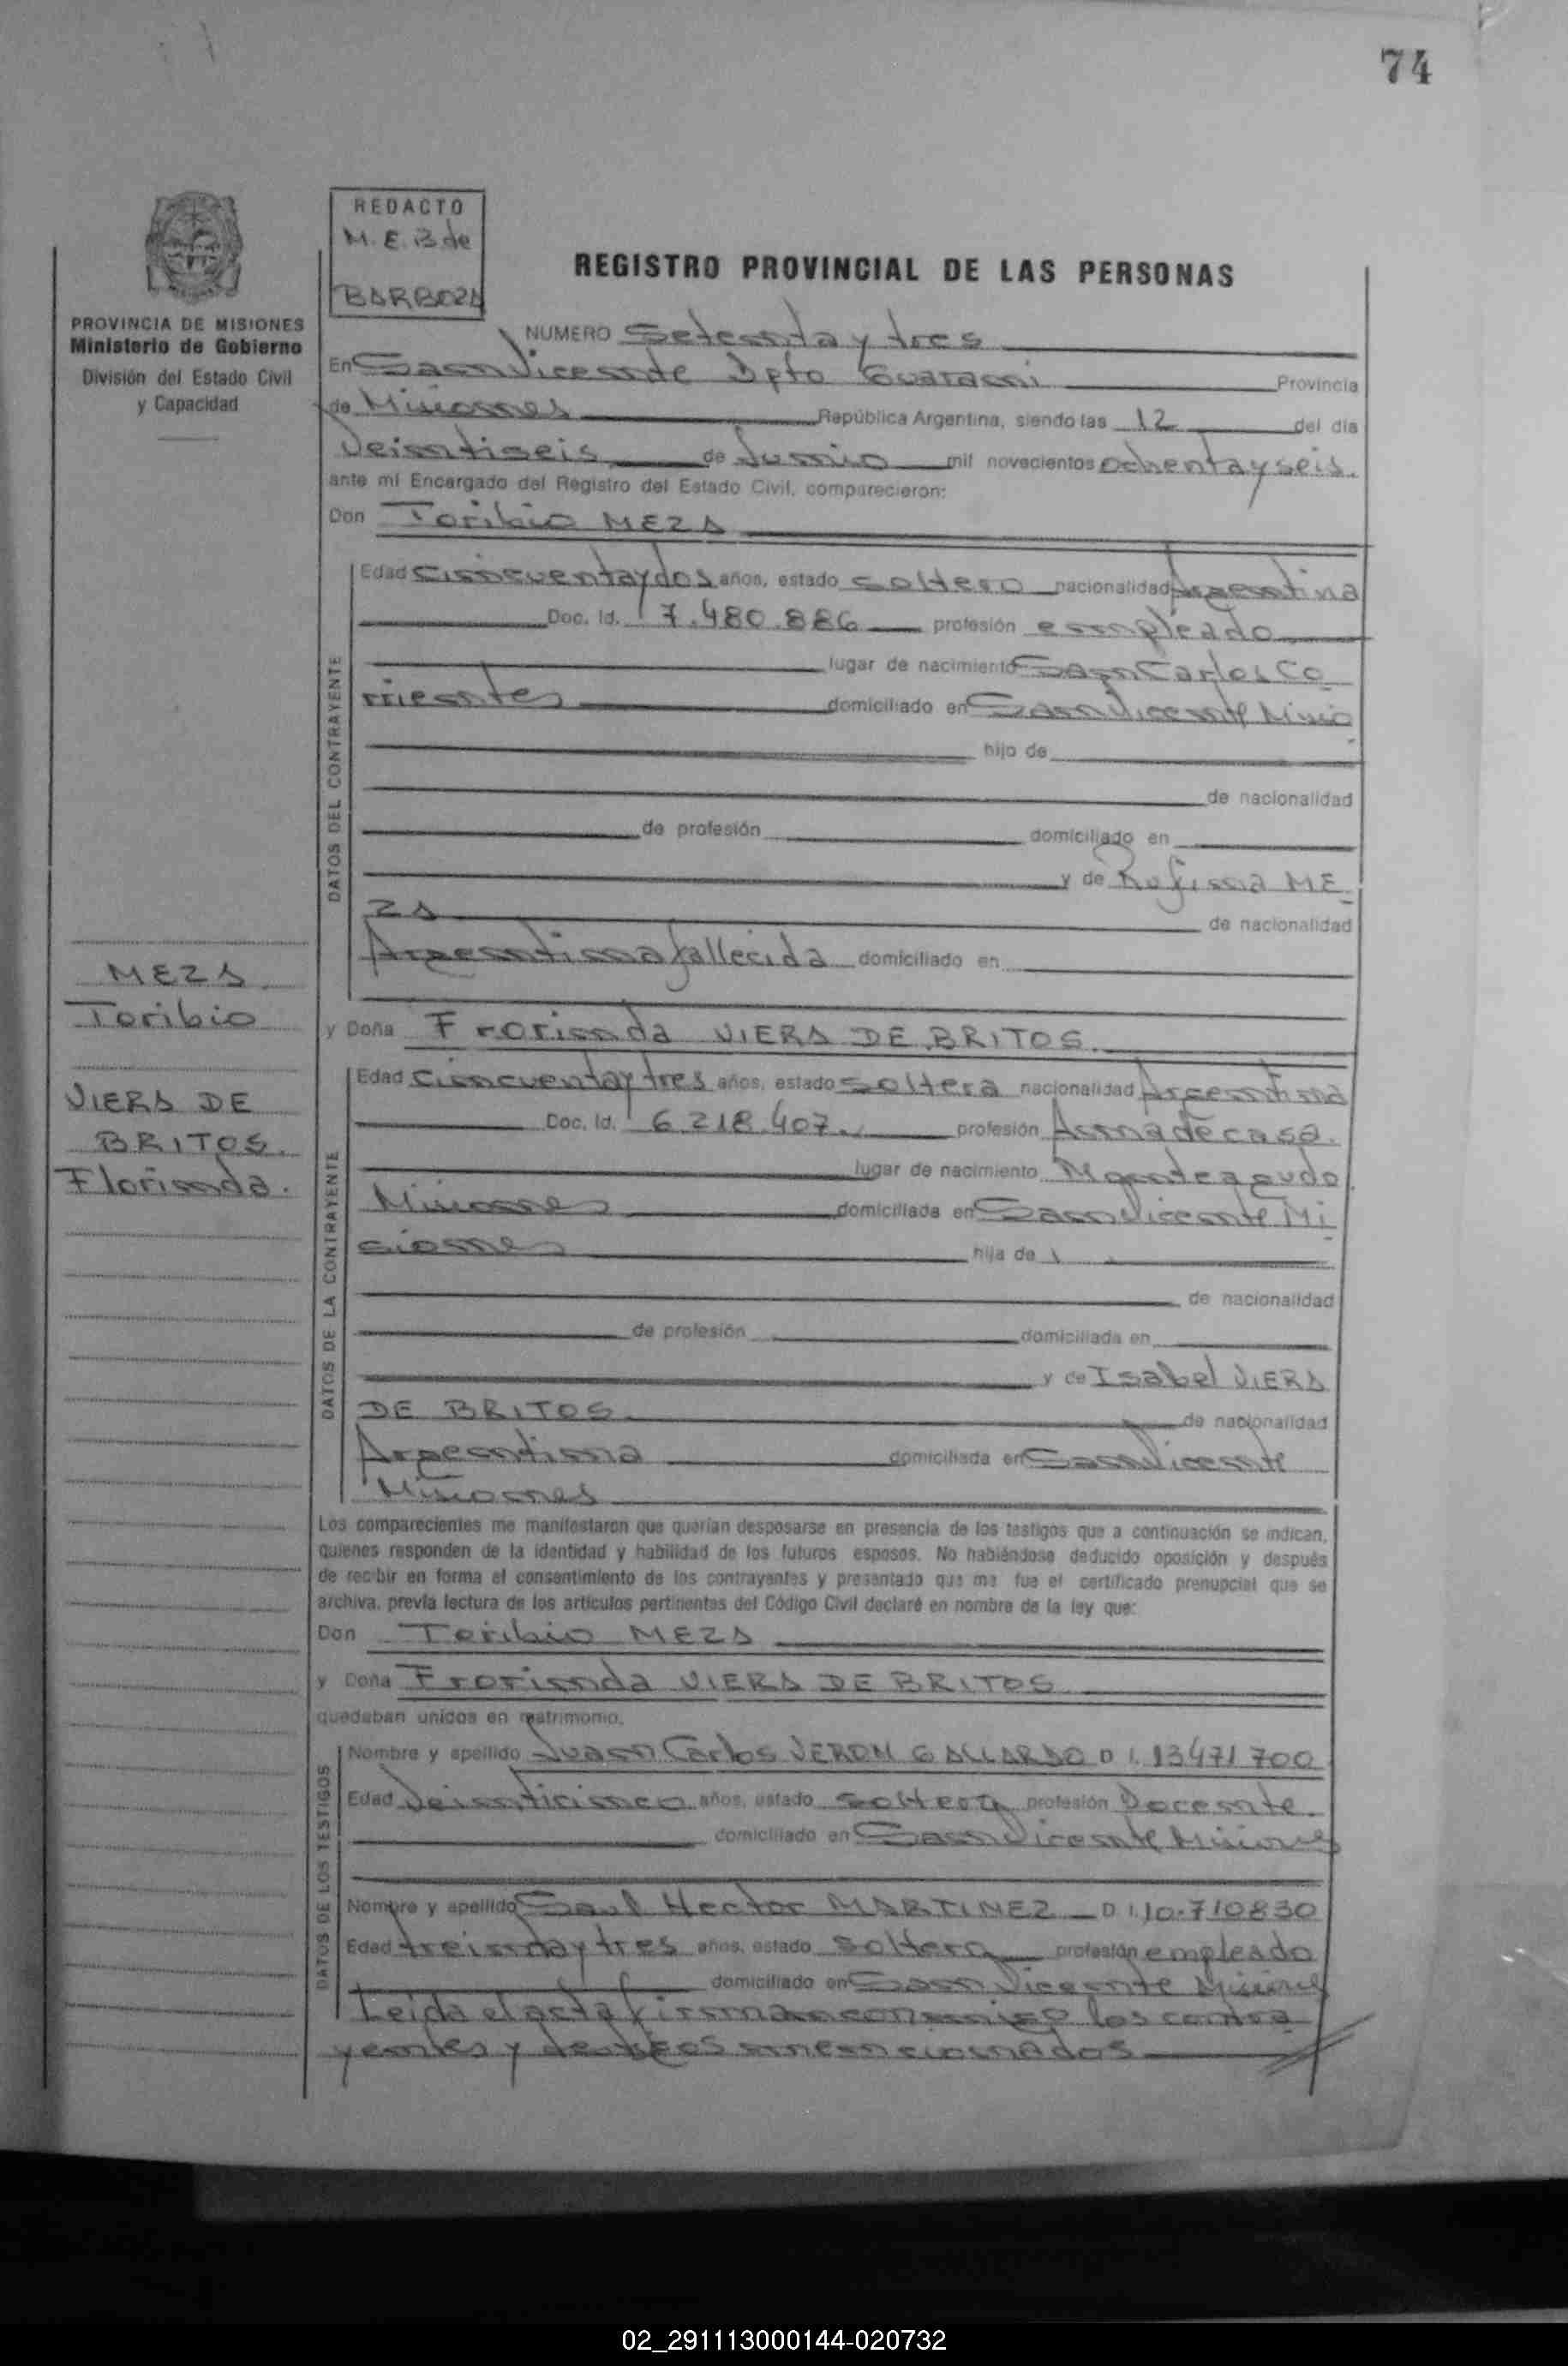 74
REDACTO
M. E. B de
BARBOZA
REGISTRO PROVINCIAL DE LAS PERSONAS
PROVINCIA DE MISIONES
Ministerio de Gobierno
División del Estado Civil
y Capacidad
NUMERO Setenta y tres
En San Vicente Dpto Guarani Provincia
de Misiones República Argentina, siendo las 12 del día
Veintiseis de Junio mil novecientos ochenta y seis.
ante mí Encargado del Registro del Estado Civil, comparecieron:
Don Toribio MEZA
DATOS DEL CONTRAYENTE
Edad Cincuenta y dos años, estado soltero nacionalidad Argentina
Doc. Id. 7.480.886 profesión empleado
lugar de nacimiento San Carlos Co
rrientes domiciliado en San Vicente Misio
hijo de
de nacionalidad
de profesión domiciliado en
y de Rufina ME
ZA de nacionalidad
Argentina fallecida domiciliado en
MEZA
Toribio
VIERA DE
BRITOS.
Florinda.
y Doña Frorinda VIERA DE BRITOS.
DATOS DE LA CONTRAYENTE
Edad Cincuenta y tres años, estado soltera nacionalidad Argentina
Doc. Id. 6.218.407. profesión Ama de casa.
lugar de nacimiento Monteagudo
Misiones domiciliada en San Vicente Mi
siones hija de
de nacionalidad
de profesión domiciliada en
y de Isabel VIERA
DE BRITOS de nacionalidad
Argentina domiciliada en San Vicente
Misiones
Los comparecientes me manifestaron que querían desposarse en presencia de los testigos que a continuación se indican,
quienes responden de la identidad y habilidad de los futuros esposos. No habiéndose deducido oposición y después
de recibir en forma el consentimiento de los contrayentes y presentado que me fue el certificado prenupcial que se
archiva, previa lectura de los artículos pertinentes del Código Civil declaré en nombre de la ley que:
Don Toribio MEZA
y Doña Frorinda VIERA DE BRITOS
quedaban unidos en matrimonio.
DATOS DE LOS TESTIGOS
Nombre y apellido Juan Carlos VERON GALLARDO D I. 13471700
Edad Veinticinco años, estado soltero profesión Docente.
domiciliado en San Vicente Misiones
Nombre y apellido Saul Hector MARTINEZ D I. 10.710830
Edad treinta y tres años, estado soltero profesión empleado
domiciliado en San Vicente Misiones
Leida el acta firman conmigo los contra
yentes y testigos mencionados
02_291113000144-020732